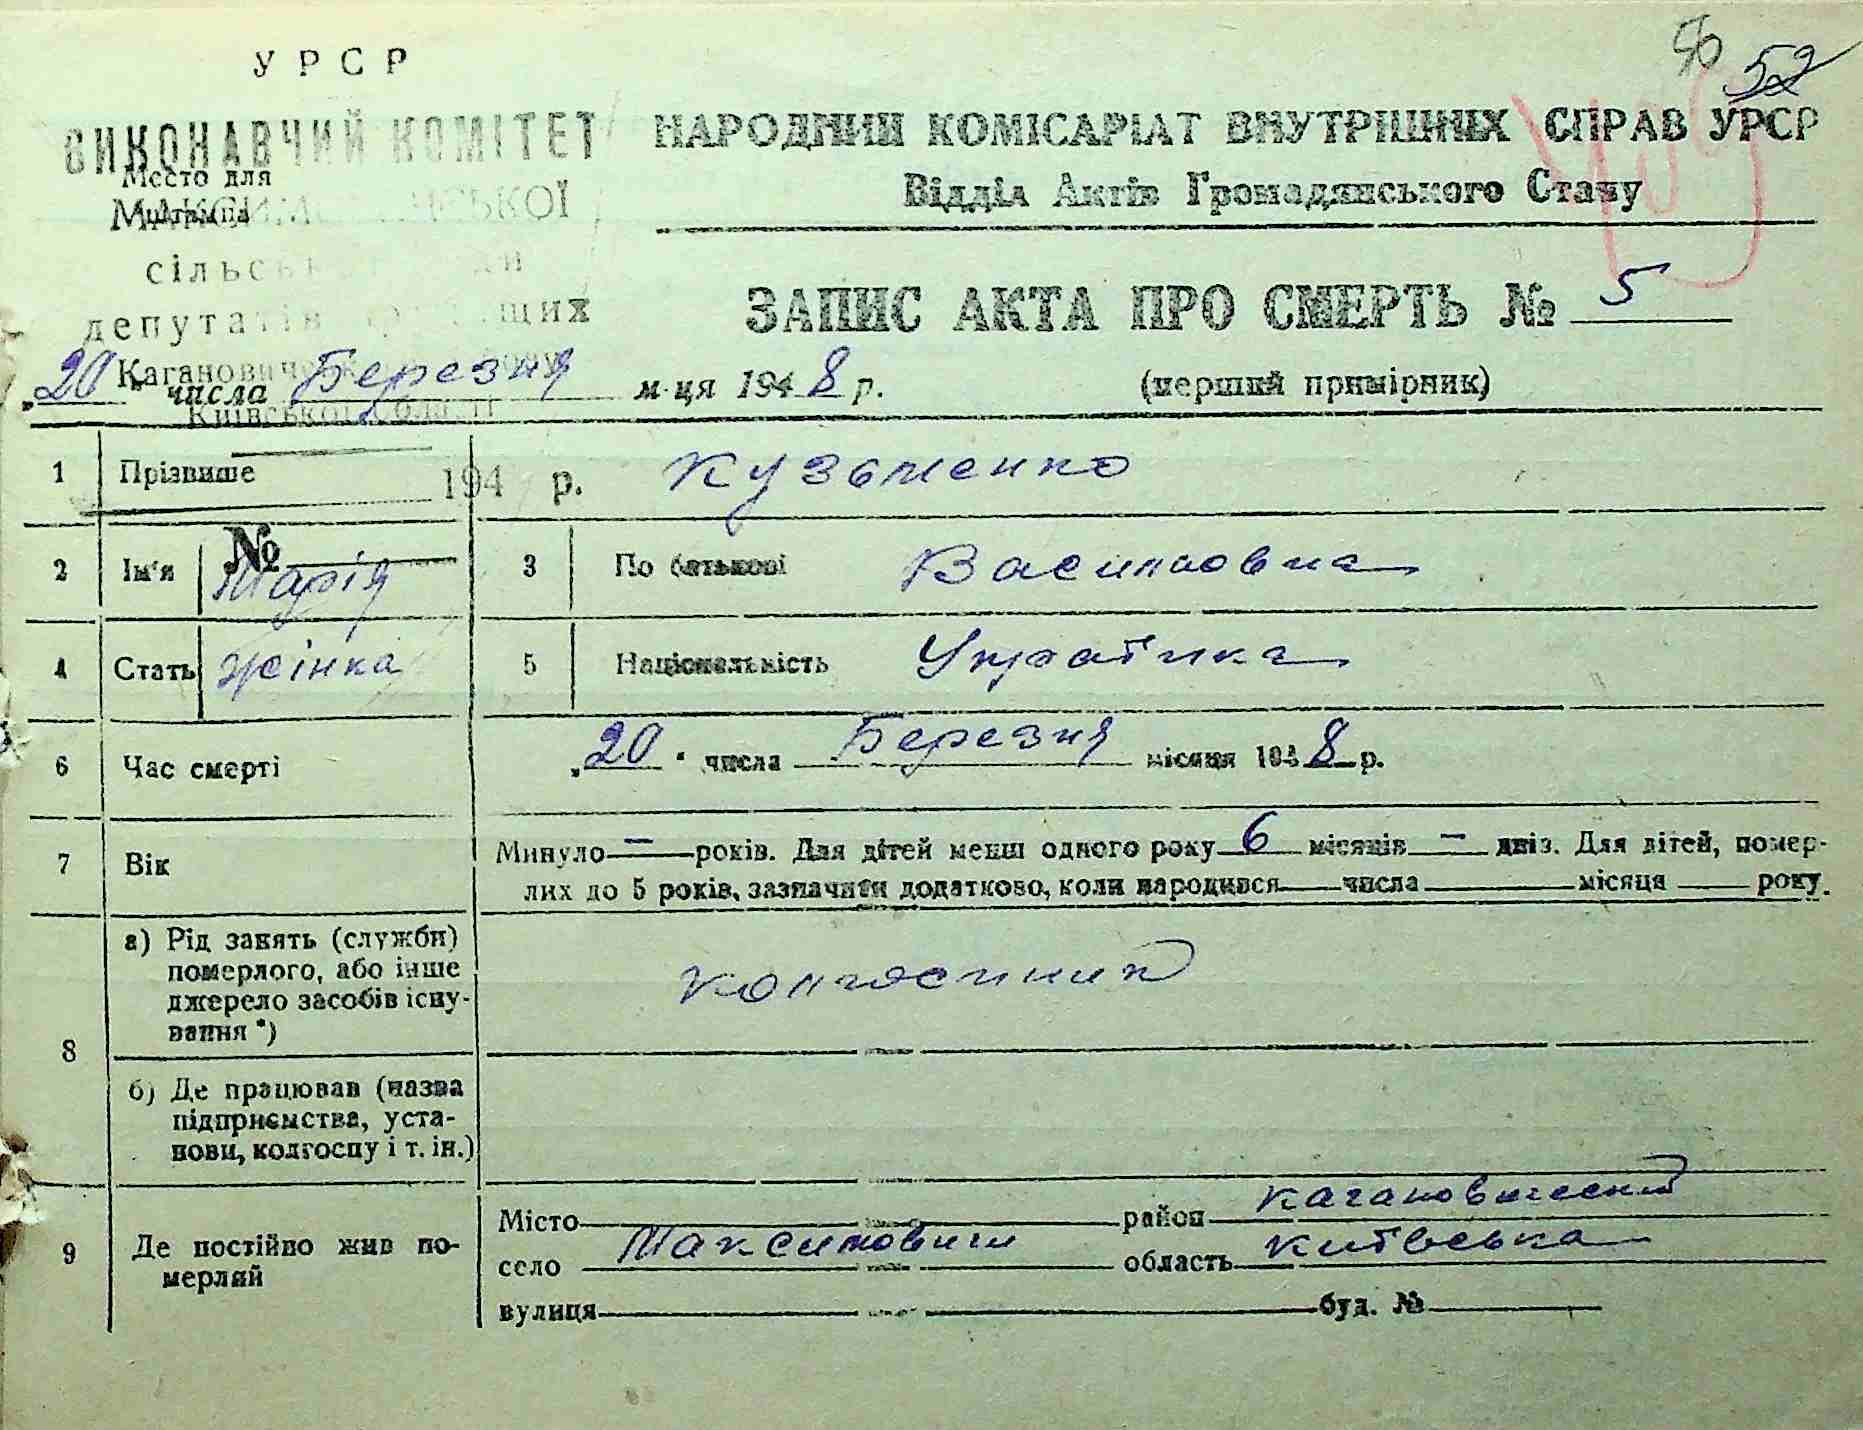 56
52
У Р С Р
ВИКОНАВЧИЙ КОМІТЕТ
НАРОДНИЙ КОМІСАРІАТ ВНУТРІШНІХ СПРАВ УРСР
Место для
штампа
Відділ Актів Громадянського Стану
ЗАПИС АКТА ПРО СМЕРТЬ № 5
депутатів
„20" числа Березня м-ця 1948 р.
(перший примірник)
Київської області
1 Прізвище 194 р. Кузьменко
№
2 Ім'я Марія 3 По батькові Василовна
4 Стать жінка 5 Національність Українка
6 Час смерті „20" числа Березня місяця 1948 р.
7 Вік Минуло — років. Для дітей менш одного року 6 місяців — днів. Для дітей, помер-
лих до 5 років, зазначити додатково, коли народився числа місяця року.
8 а) Рід занять (служби)
померлого, або інше
джерело засобів існу-
вання *)
колгоспник
б) Де працював (назва
підприємства, уста-
нови, колгоспу і т. ін.)
9 Де постійно жив по-
мерлий
Місто район Кагановичский
село Максимовичи область Київська
вулиця буд. №